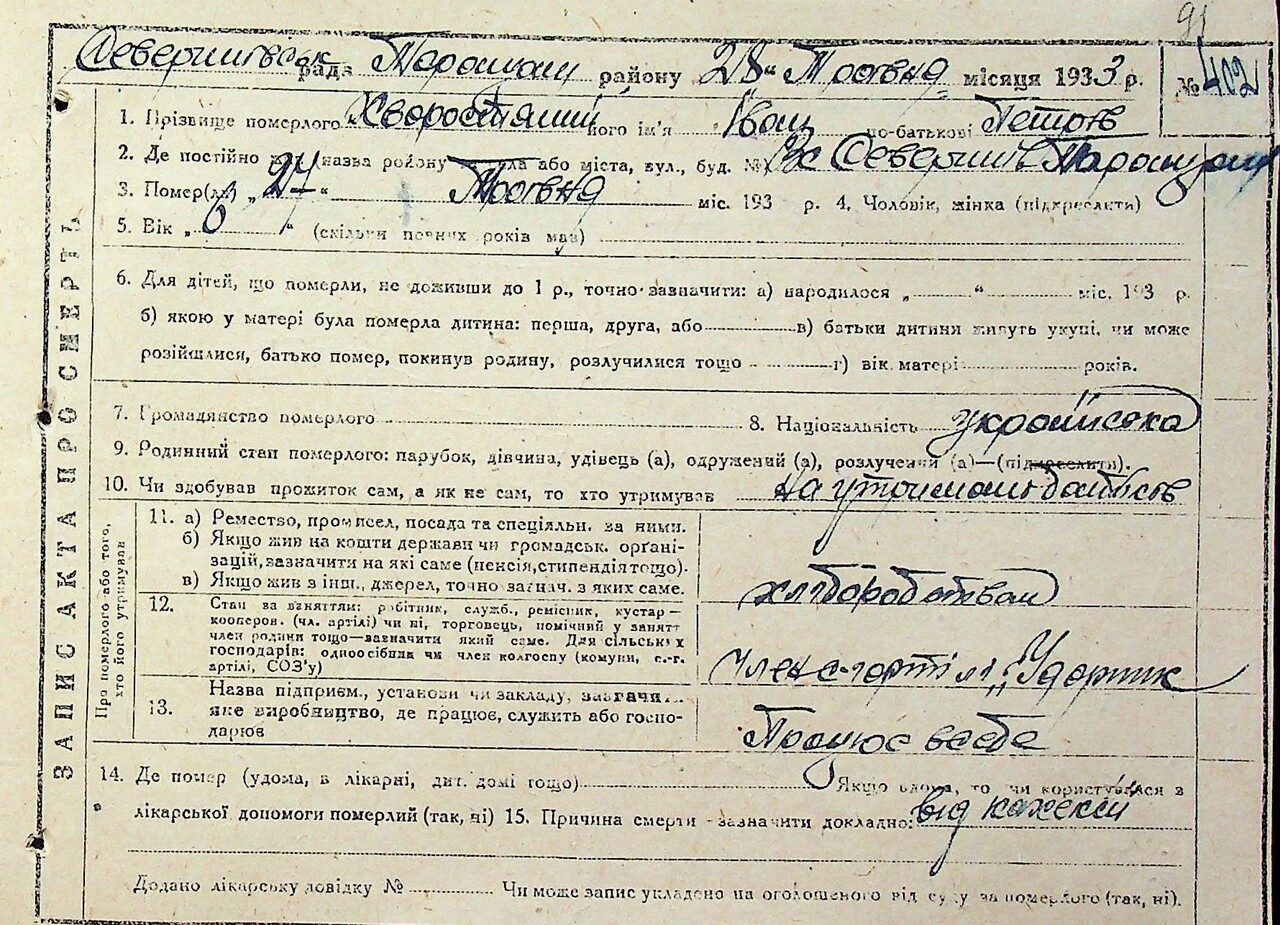 91
рада Таращан району 28 " Травня місяця 1933 р. № 402
1. Прізвище померлого його ім'я Іван по-батькові Петров
2. Де постійно назва району або міста, вул., буд. №
3. Помер(ла) „ 27 " Травня міс. 193 р. 4. Чоловік, жінка (підкреслити)
5. Вік „ 6 " (скільки повних років мав)
6. Для дітей, що померли, не доживши до 1 р., точно зазначити: а) народилося „ " міс. 193 р.
б) якою у матері була померла дитина: перша, друга, або в) батьки дитини живуть укупі, чи може
розійшлися, батько помер, покинув родину, розлучилися тощо г) вік матері років.
7. Громадянство померлого 8. Національність українська
9. Родинний стан померлого: парубок, дівчина, удівець (а), одружений (а), розлучений (а)—(підкреслити).
10. Чи здобував прожиток сам, а як не сам, то хто утримував на утриманні батьків
ЗАПИС АКТА ПРО СМЕРТЬ
Про померлого або того,
хто його утримував
11. а) Ремество, промисел, посада та спеціяльн. за ними.
б) Якщо жив на кошти держави чи громадськ. орґані-
зацій, зазначити на які саме (пенсія, стипендія тощо).
в) Якщо жив з інш. джерел, точно зазнач. з яких саме.
хліборобством
12. Стан за заняттям: робітник, служб., ремісник, кустар—
кооперов. (чл. артілі) чи ні, торговець, помічний у занятт
член родини тощо—зазначити який саме. Для сільських
господарів: одноосібник чи член колгоспу (комуни, с.-г.
артілі, СОЗ'у)
член с-г артілі „Ударник
13. Назва підприєм., установи чи закладу, зазначи..
яке виробництво, де працює, служить або госпо-
дарює
Працює в себе
14. Де помер (удома, в лікарні, дит. домі тощо) Якщо вдома, то чи користувався з
лікарської допомоги померлий (так, ні) 15. Причина смерти зазначити докладно: від кахексії
Додано лікарську довідку № Чи може запис укладено на оголошеного від суду за померлого (так, ні).